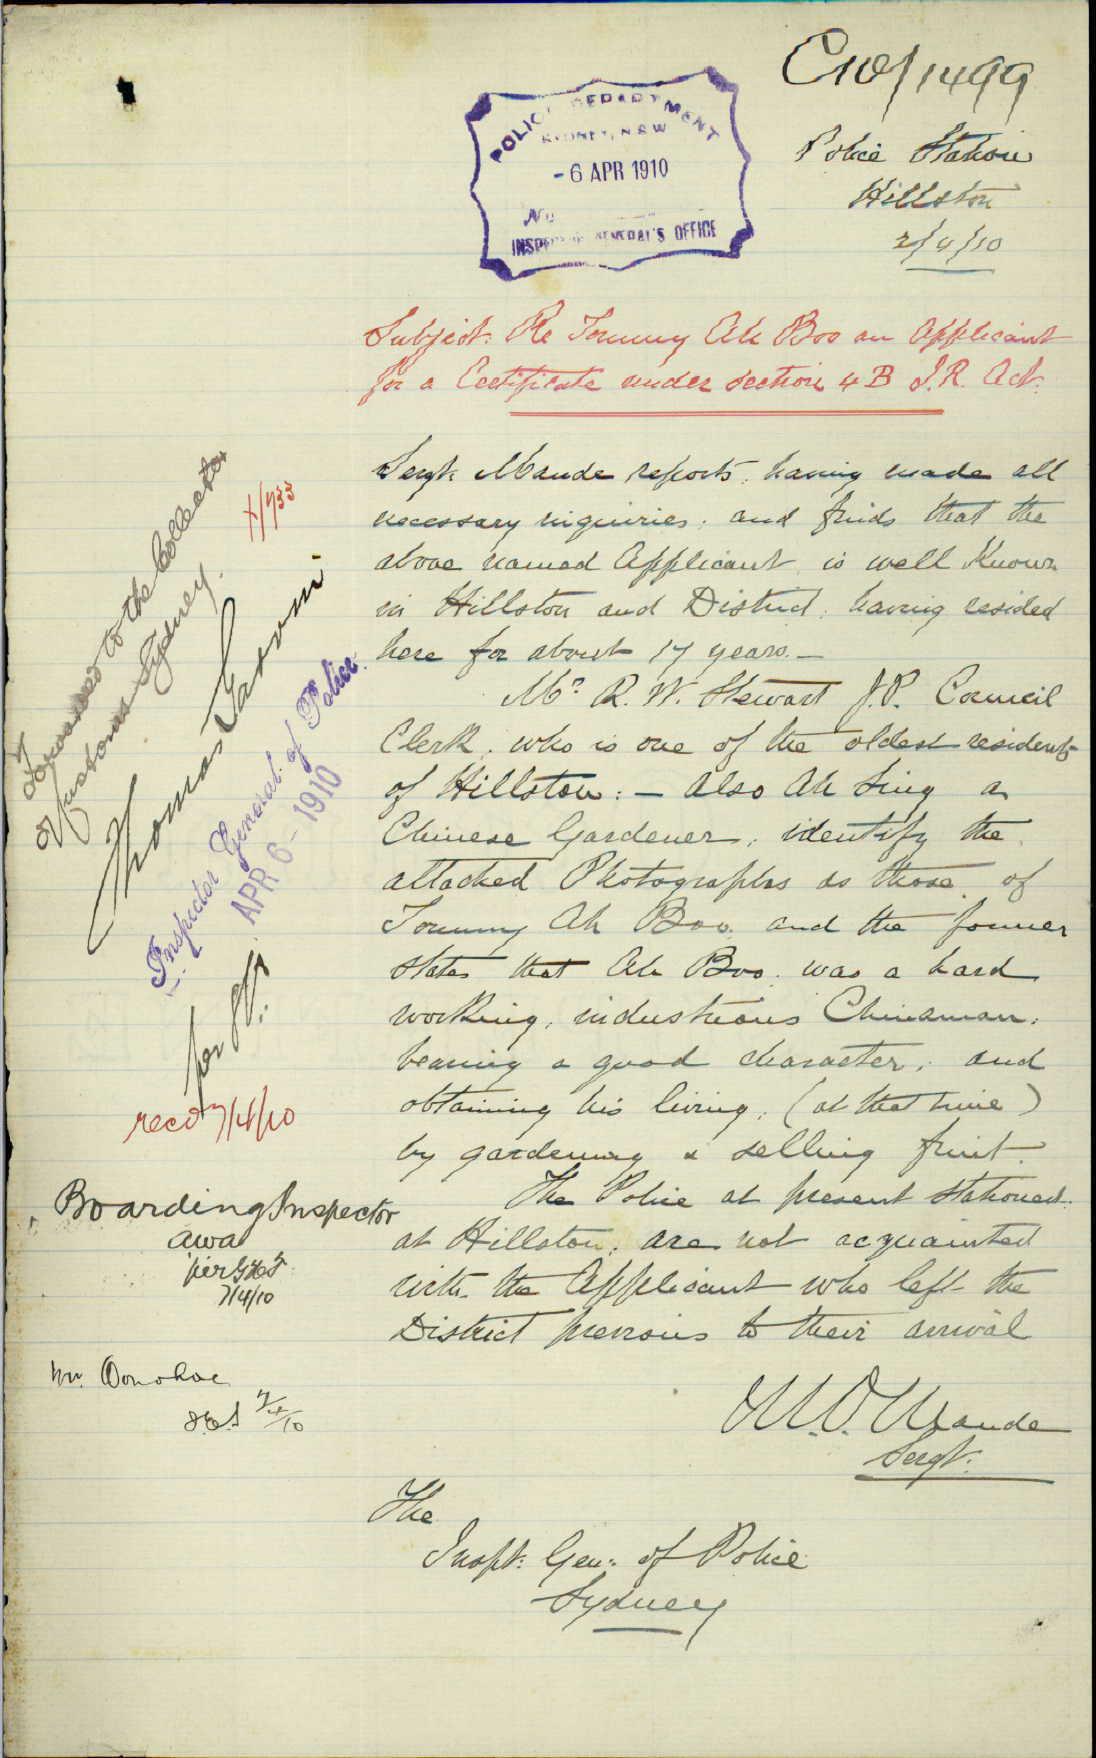 C10/1499
POLICE DEPARTMENT
SYDNEY, N.S.W
- 6 APR 1910
No
INSPECTOR GENERAL'S OFFICE
Police Station
Hillston
2/4/10
Subject: Re Tommy Ah Boo an Applicant
for a Certificate under section 4 B I.R. Act.
Sergt. Maude reports, having made all
necessary inquiries, and finds that the
above named Applicant is well Known
in Hillston and District, having resided
here for about 17 years. —
Mr. R. W. Stewart J.P. Council
Clerk, who is one of the oldest residents
of Hillston: — also Ah Sing a
Chinese Gardener, identify the
attached Photographs as those of
Tommy Ah Boo, and the former
states that Ah Boo, was a hard
working, industrious Chinaman,
bearing a good character, and
obtaining his living, (at that time)
by gardening & selling fruit.
The Police at present stationed
at Hillston, are not acquainted
with the Applicant who left the
District previous to their arrival
M.O. Maude
Sergt.
The
Inspt. Gen. of Police
Sydney
Forwarded to the Collector
of Customs Sydney.
Thomas Garvin
Inspector General of Police.
APR 6 - 1910
recd 7/4/10
Boarding Inspector
7/4/10
Mr. Donohoe
7/4/10